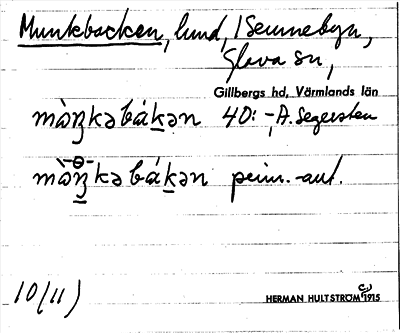 Munkbacken, lund, i Sunnebyn,
Glava sn,
Gillbergs hd, Värmlands län
mὰŋkəbákən 40:-, A. Segersten
mὰŋkəbákən prim.-aut.
10(11)
HERMAN HULTSTRÖM 1915